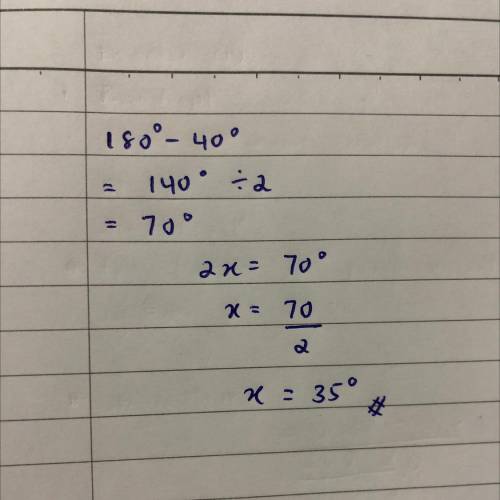 180° - 40°
= 140° ÷ 2
= 70°
2x = 70°
x = 70/2
x = 35° #